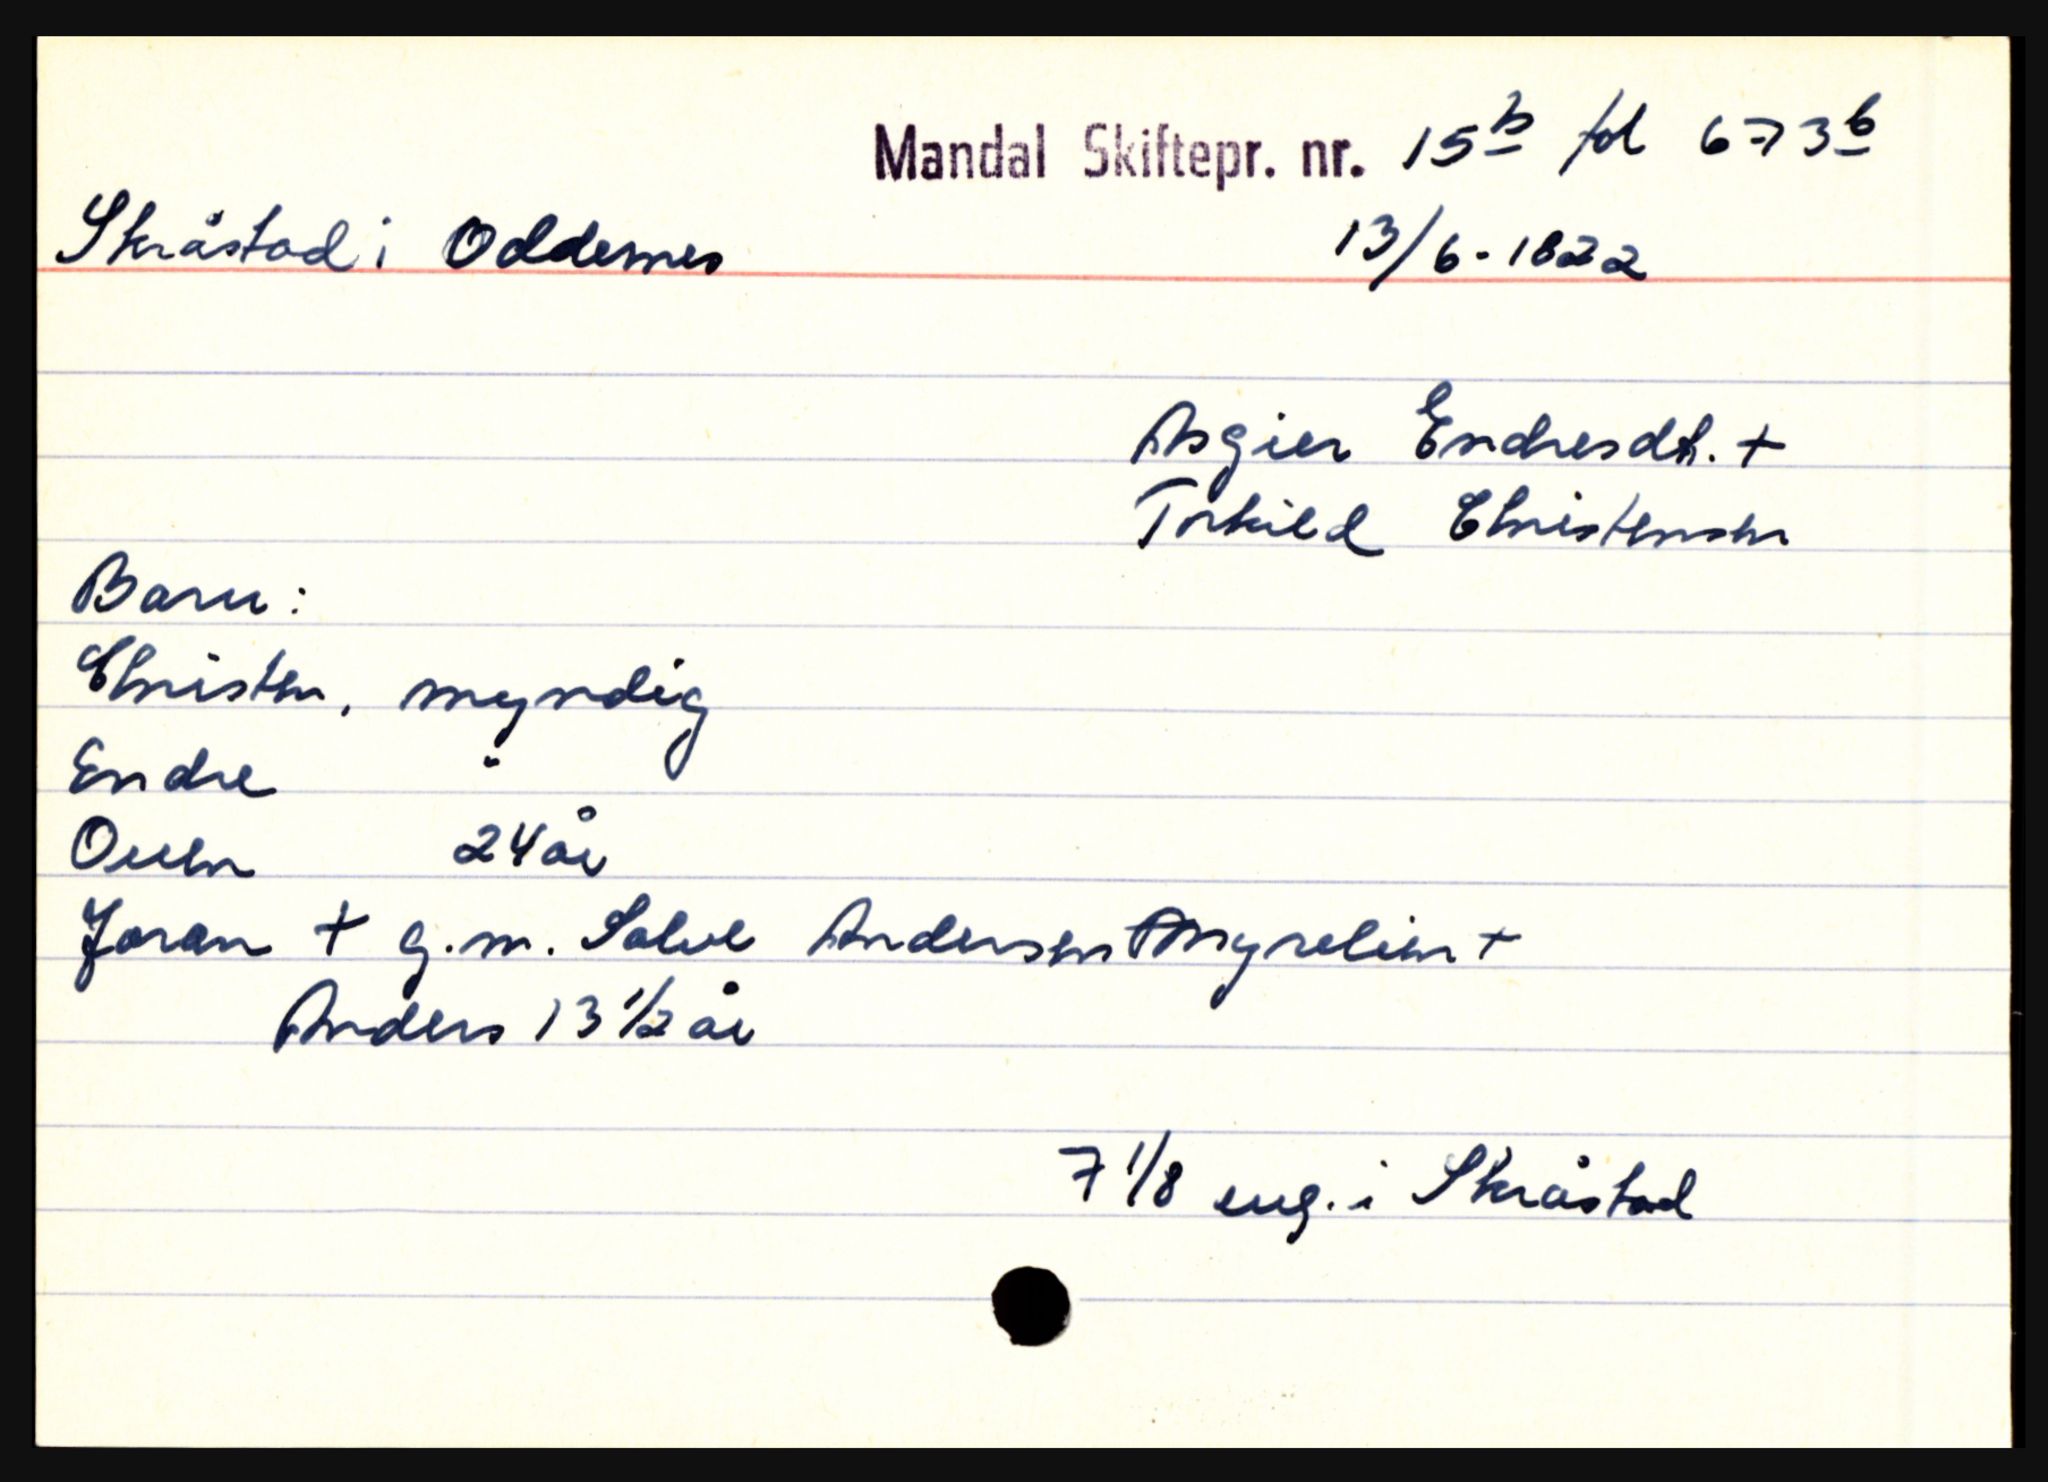 Mandal Skiftepr. nr. 15b fol 673b
Skråstad i Oddernes 13/6-1822
Asgier Endresdt. +
Torkild Christensen
Barn:
Christen, myndig
Endre "
Ouen 24 år
Joran + g.m. Salve Andersen Myrelien +
Anders 13 1/2 år
7 1/8 eng. i Skråstad